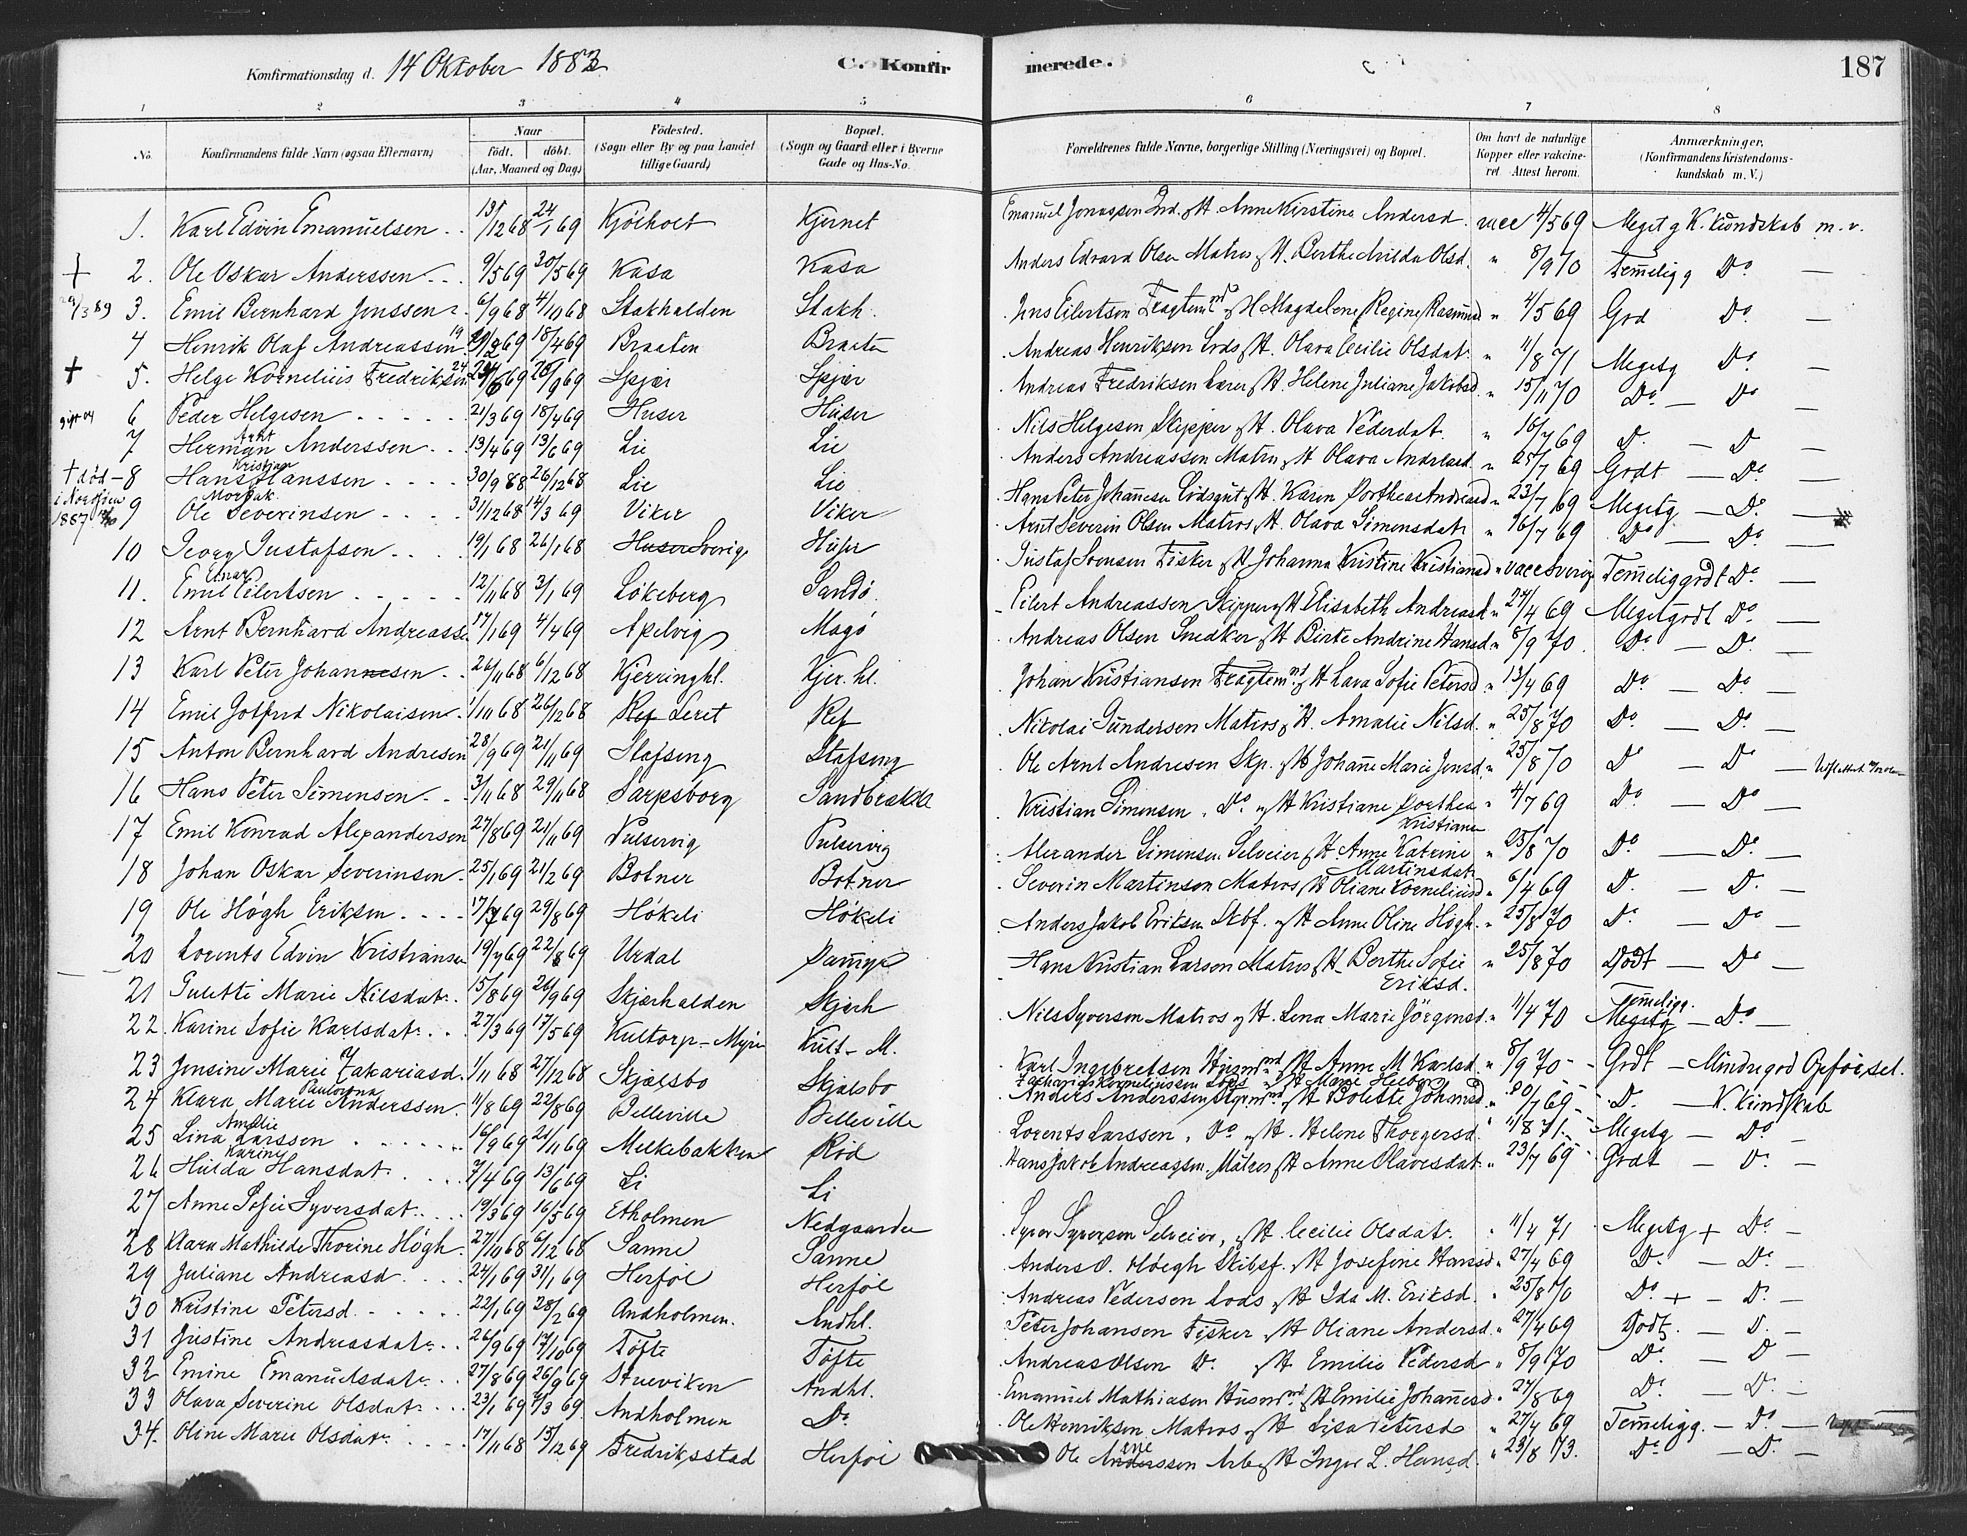 Konfirmationsdag d. 14 Oktober 1883 C. Konfirmerede. 187
1 2 3 4 5 6 7 8
No. Konfirmandens fulde Navn (ogsaa Efternavn) Naar födt. döbt. (Aar, Maaned og Dag) Födested. (Sogn eller By og paa Landet tillige Gaard) Bopæl. (Sogn og Gaard eller i Byerne Gade og Hus-No. Forældrenes fulde Navne, borgerlige Stilling (Næringsvei) og Bopæl. Om havt de naturlige Kopper eller vakcineret. Attest herom. Anmærkninger, (Konfirmandens Kristendomskundskab m. V.)
1. Karl Edvin Emanuelsen 13/12 68 24/1 69 Kjölholt Kjernet Emanuel Jonassen Ind. og H. Anne Kirstine Andersd. vacc 4/5 69 Meget g K. Kundskab m. v.
+ 2. Ole Oskar Anderssen 9/5 69 30/5 69 Kasa Kasa Anders Edvard Olsen Matros og H. Berthe Avilda Olsd. " 8/9 70 Temelig g Do —
3. Emil Bernhard Jenssen 6/9 68 4/10 68 Stakkalden Stakh. Jens Eilertsen Fragtemd og H Magdelene Regine Rasmusd " 4/5 69 God Do —
4 Henrik Olaf Andreassen 18/4 69 Braaten Braaten Andreas Henriksen Lods og H. Olava Cecilie Olsdat. " 11/8 71 Megetg Do —
+ 5. Helge Kornelius Fredriksen Spjær Spjær Andreas Fredriksen Lærer og H. Helene Juliane Jakobsd " 15/11 70 Do — Do —
gift og 6 Peder Helgesen 21/3 69 18/4 69 Huser Huser Nils Helgesen Skipper og H. Olava Pedersdat. " 16/7 69 D. — D —
7 Herman Arnt Anderssen 13/4 69 13/6 69 Lie Lie Anders Andreassen Matros og H Olava Andreasd. " 25/7 69 Godt — Do —
+ död 8 Hans Kristian Hanssen 30/9 68 26/12 68 Lie Lie Hans Peter Johannesen Lodsgut og H. Karen Dorthea Andreasd " 23/7 69 Megetg — D. —
i Nordsjøen 1887 9 Ole Morzak Severinsen 31/12 68 14/3 69 Viker Viker Arnt Severin Olsen Matros og H. Olava Simensdat. " 16/7 69 Do — Do —
10 Georg Gustafsen 19/1 68 26/1 68 Huser Sverig Huser Gustaf Svensen Fisker og H Johanna Kristine Kristiansd " vacc Sverig Temeliggodt Do —
11. Emil Einar Eilertsen 12/11 68 3/1 69 Lökeberg Sandö Eilert Andreassen Skipper og H Elisabeth Andreasd " 27/4 69 Megetgodt Do —
12 Arnt Bernhard Andreassen 17/1 69 4/4 69 Apelvig Magö Andreas Olsen Snedker og H Birte Andrine Hansd " 8/9 70. Do — Do —
13 Karl Peter Johannesen 26/11 68 6/12 68 Kjerringhl. Kjer. hl. Johan Kristiansen Fragtemd og H Lava Sofie Petersd " 13/4 69 Do — Do —
14 Emil Gotfred Nikolaisen 1/11 68 26/12 68 Ref Leret Ref Nikolai Gundersen Matros og H. Amalie Nilsd. " 25/8 70 Do — Do —
15 Anton Bernhard Andresen 28/9 69 21/11 69 Stafseng Stafseng Ole Arnt Andresen Skp. og H Johanne Marie Jensd. " 25/8 70 D — D —
16 Hans Peter Simensen 3/11 68 29/11 68 Sarpsborg Sandbrække Kristian Simensen, Do og H Kristiane Dorthea Kristiane " 4/7 69 Do — Do —
17 Emil Konrad Alexandersen 27/8 69 21/11 69 Pulservig Pulservig Alexander Simensen Selveier og H. Anne Katrine Martinsdat. " 25/8 70 Do — Do —
18 Johan Oskar Severinsen 25/1 69 21/2 69 Botner Botner Severin Martinsen Matros og H Oliane Korneliusd " 6/4 69 D. — D. —
19 Ole Högh Eriksen 17/7 69 29/8 69 Hökeli Hökeli Anders Jakob Eriksen Skbf. og H Anne Oline Högh. " 25/8 70 Do — Do
20 Lorents Edvin Kristiansen 19/7 69 22/8 69 Urdal Damyr Hans Kristian Larsen Matros og H Berthe Sofie Eriksd. " 25/8 70 Godt — Do —
21 Gulette Marie Nilsdat. 15/8 69 26/9 69 Skjærhalden Skjærh Nils Syversen Matros og H. Lena Marie Jörgensd. " 11/4 70 Temeligg. Megetg — Do —
22. Karine Sofie Karlsdat. 27/3 69 17/5 69 Kultorp-Myren Kult-M. Karl Ingebretsen Husmd og H Anne M Karlsd. " 8/9 70 Godt — Mindregod Opförsel.
23 Jensine Marie Zakariasd. 1/11 68 27/12 68 Skjælsbo Skjælsbo Zacharias Korneliussen Lods og H Marie Helberg
24 Klara Marie Paulovna Anderssen 11/8 69 22/8 69 Belleville Belleville Anders Anderssen Styrmd og H Bolette Johansd " 20/7 69 D. — K. Kundskab
25 Lina Amelie Larssen 16/9 69 21/11 69 Melkebakken Röd Lorents Larssen, Do og H. Helene Thorgersd. " 11/8 71 Megetg — Do —
26 Hulda Karine Hansdat. 7/4 69 13/6 69 Li Li Hans Jakob Andreassen, Matros og H Anne Olavesdat. " 23/7 69 Godt — D. —
27 Anne Sofie Syversdat. 19/3 69 16/5 69 Etholmen Nedgaarden Syver Syversen Selveier, og H. Cecilie Olsdat. " 11/4 71 Megetg + Do —
28 Klara Mathilde Thorine Högh. 27/10 68 6/12 68 Sanne Sanne Anders O. Höegh Skibsf. og H Josefine Hansd " 27/4 69 D. — Do —
29 Juliane Andreasd. 24/1 69 31/1 69 Herföl Herföl Andreas Pedersen Lods og H Ida M. Eriksd. " 25/8 70 Do + — D. —
30 Kristine Petersd. 22/1 69 28/2 69 Andholmen. Andhl. Peter Johansen Fisker og H Oliane Andersd. " 27/4 69 Godt. — D. —
31 Justine Andreasdat. 26/9 69 17/10 69 Töfte Töfte Andreas Olsen Do og H Emilie Pedersd " 8/9 70 D. — D —
32 Emine Emanuelsdat. 27/8 69 26/9 69 Stueviken Andhl. Emanuel Mathiasen Husmd og H Emilie Johannesd. " 27/8 69 D. — D. —
33 Olava Severine Olsdat. 23/1 69 7/3 69 Andholmen Do. Ole Henriksen Matros og H Lisa Petersd " 27/4 69 Temeligg. — Do —
34. Oline Marie Olsdat. 17/11 68 Fredriksstad Herföl Ole Arb. og H Inger L. Hansd. " 23/8 73. Do — D. —